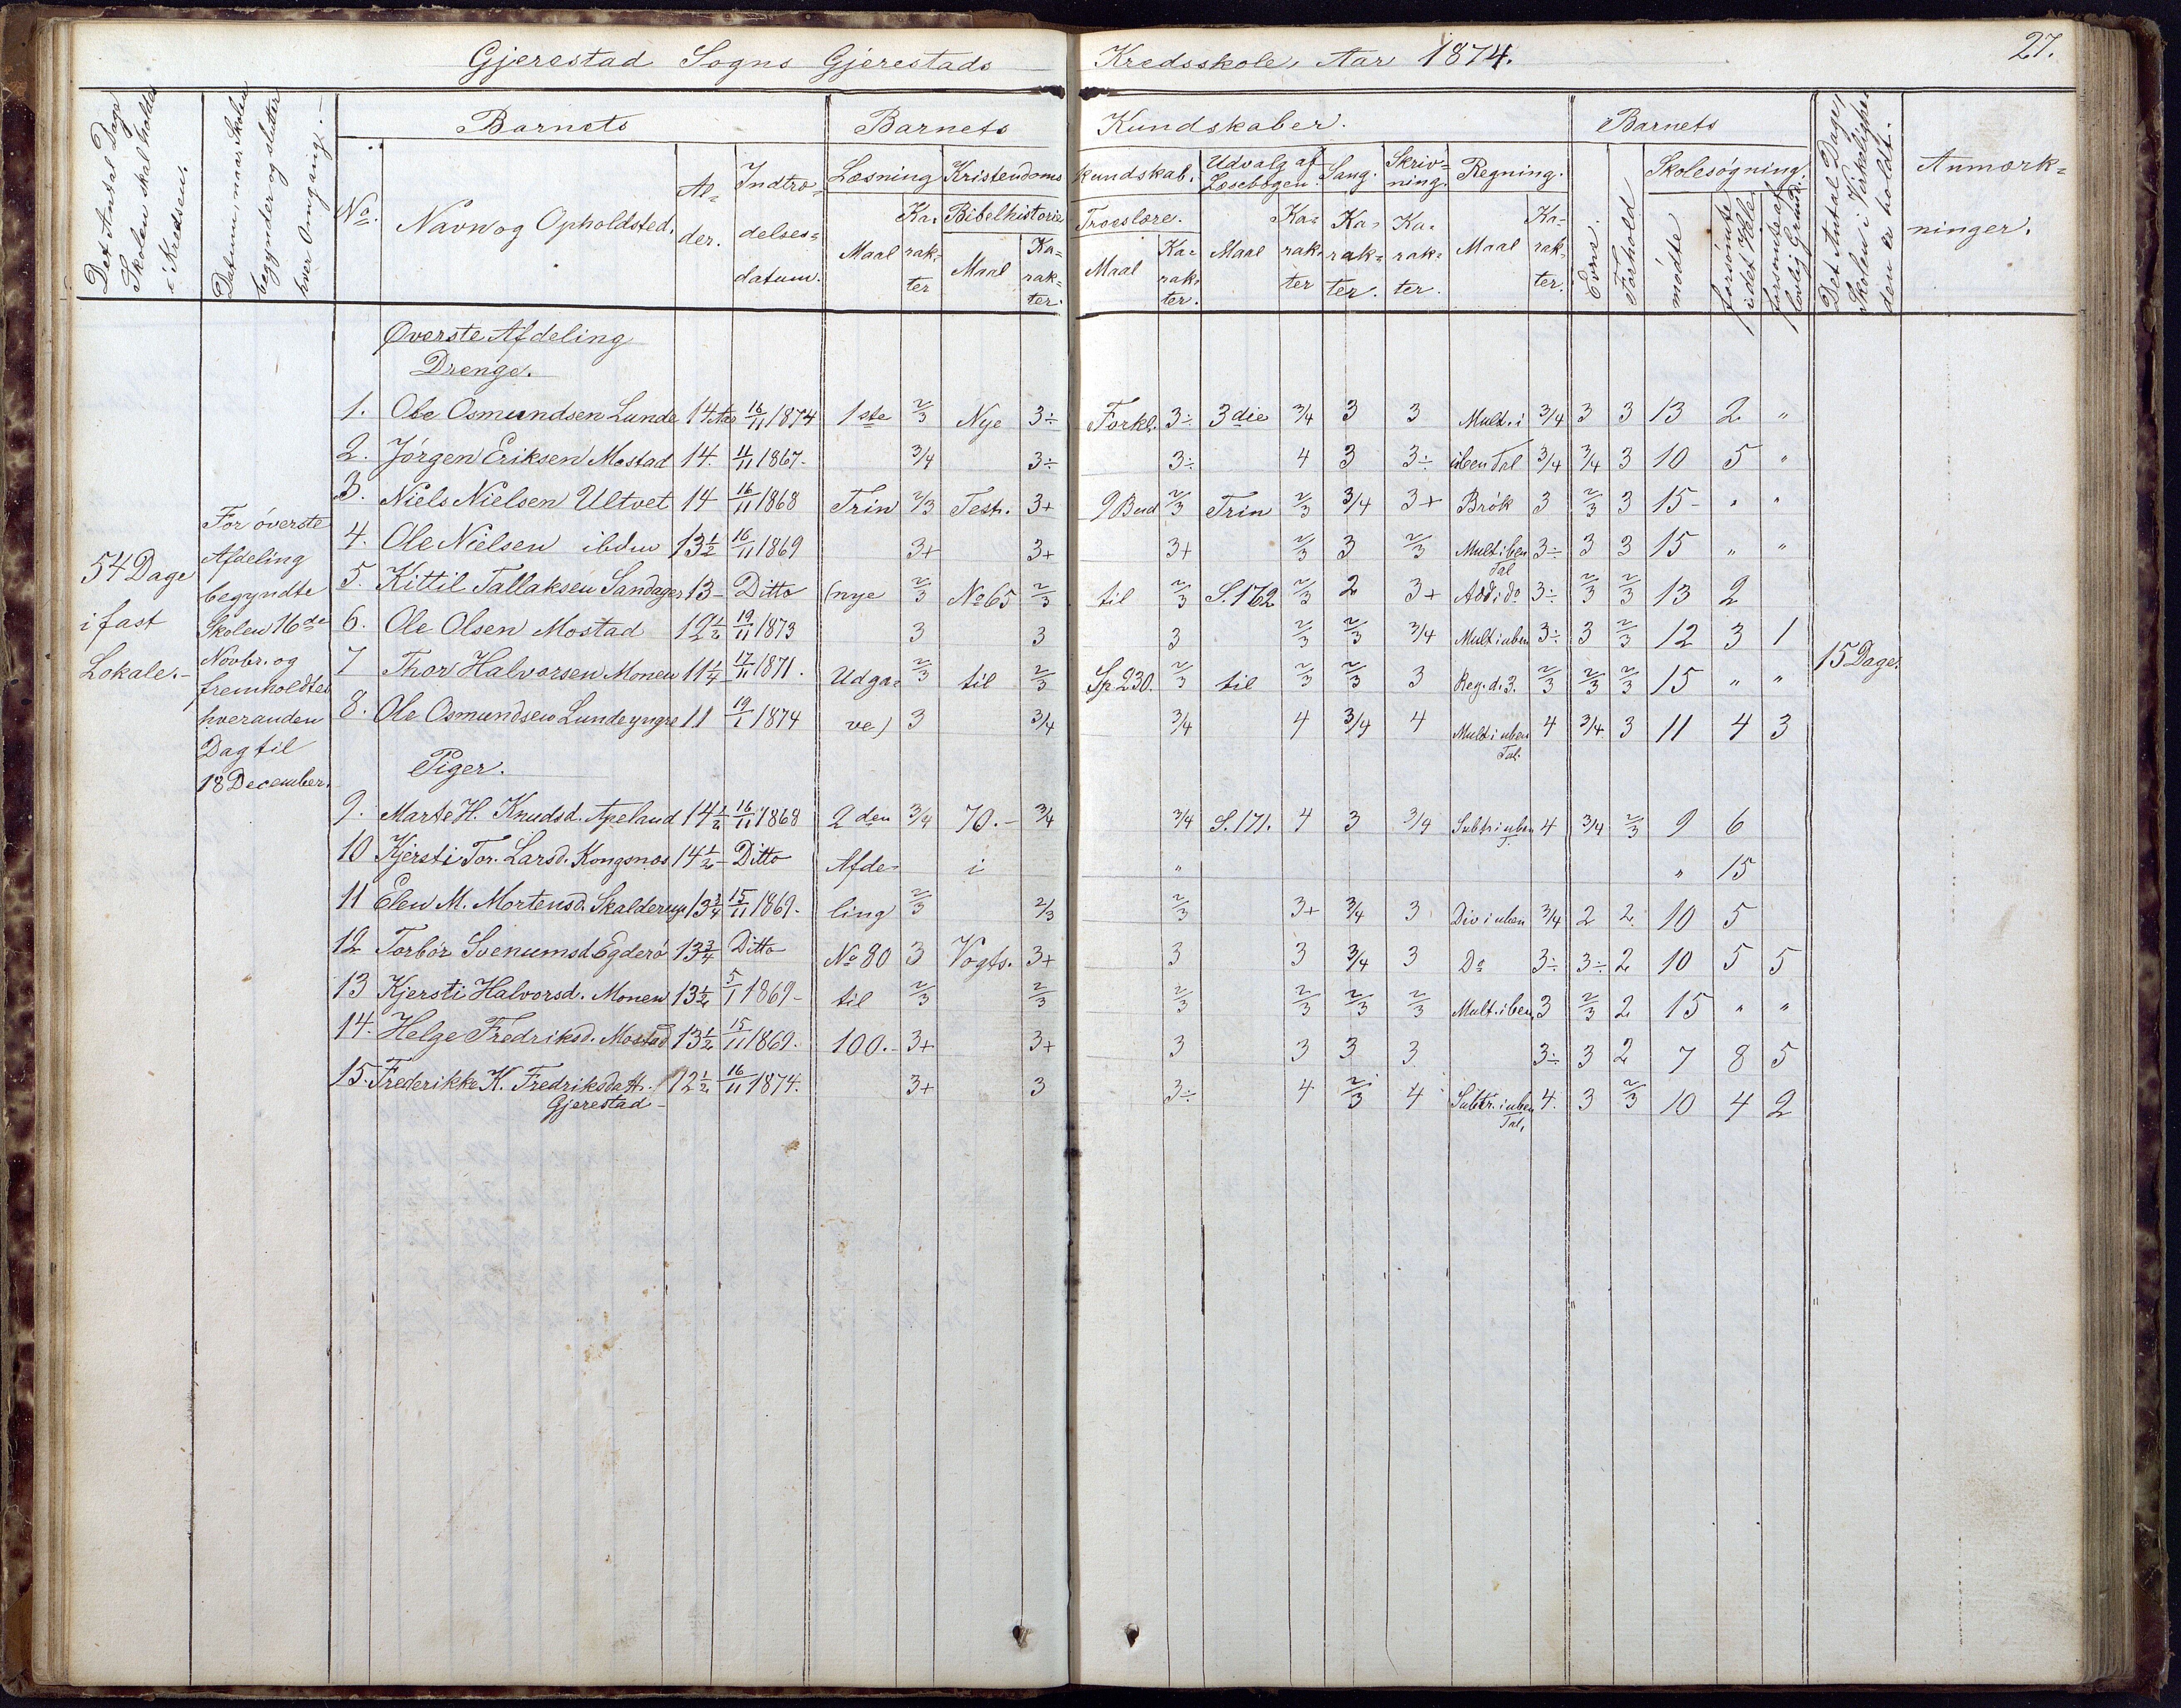 Gjerestad Sogns Gjerestads Kredsskole, Aar 1874. 27.
Det Antal Dage Skolen skal holdes i Kredsen.
Datum, naar Skolen begynder og slutter hver Omgang.
Barnets
Barnets Kundskaber.
Barnets
Det Antal Dage, Skolen i Virkeligheden er holdt.
Anmærkninger.
No. Navn og Opholdsted. Alder. Indtrædelsesdatum.
Læsning Kristendoms kundskab. Udvalg af Læsebogen. Sang. Skrivning. Regning. Evne. Forhold Skolesøgning.
Maal Karakter Bibelhistorie Maal Karakter. Troeslære. Maal Karakter. Maal Karakter Karakter. Karakter. Maal Karakter. mødte forsømte i det Hele forsømte af lovlig Grund.
Øverste Afdeling
Drenge.
1. Ole Osmundsen Lunde 14 Aar 16/11 1874 1ste 2/3 Nye 3÷ Forkl. 3÷ 3die 3/4 3 3 Mult. i 3/4 3 3 13 2 "
2. Jørgen Eriksen Mostad 14. 11/11 1867- 3/4 3÷ 3÷ 4 3 3÷ uben Tal 3/4 3/4 3 10 5 "
3. Niels Nielsen Ultvet 14 16/11 1868 Trin 2/3 Test. 3+ 9 Bud 2/3 Trin 2/3 3/4 3+ Brøk 3 2/3 3 15- " "
4. Ole Nielsen ibdm 13½ 16/11 1869 3+ 3+ 3+ 2/3 3 2/3 Mult i ben Tal 3÷ 3 3 15 " "
5. Kittil Tallaksen Sandager 13- Ditto (nye 2/3 No 65 2/3 til 2/3 S. 162 2/3 2 3+ Add i do 3÷ 2/3 2/3 13 2
6. Ole Olsen Mostad 12½ 19/11 1873 3 3 3 2/3 2/3 3/4 Mult i uben 3÷ 3 2/3 12 3 1
7 Thor Halvorsen Monen 11¼ 17/11 1871. Udga= 2/3 til 2/3 Sp. 230. 2/3 til 2/3 2/3 3 Reg. d. 3. 2/3 2/3 2/3 15 " "
8. Ole Osmundsen Lunde yngre 11 19/1 1874 ve) 3 3/4 3/4 4 3/4 4 Mult i uben Tal. 4 3/4 3 11 4 3
54 Dage i fast Lokale.-
For øverste
Afdeling
begyndte
Skolen 16de
Novbr. og
fremholdtes
hveranden
Dag til
18 December.
15 Dage.
Piger.
9. Marte H. Knudsd. Apeland 14½ 16/11 1868 2den 3/4 70.- 3/4 3/4 S. 171. 4 3 3/4 Subtr i uben T. 4 3/4 2/3 9 6
10 Kjersti Tor. Larsd. Kongsnæs 14½- Ditto Afde- i " " 15
11 Elen M. Mortensd. Skalderup 13¾ 15/11 1869- ling 2/3 2/3 2/3 3+ 3/4 3 Div i uben 3/4 2 2. 10 5
12 Torbør Svenumsd Egderø 13¾ Ditto No 80 3 Vogts. 3+ 3 3 3/4 3 Do 3÷ 3÷ 2 10 5 5
13 Kjersti Halvorsd. Monen 13½ 5/1 1869- til 2/3 2/3 2/3 2/3 2/3 2/3 Mult. i ben. 3 2/3 2 15 " "
14. Helge Fredriksd. Mostad 13½ 15/11 1869. 100.- 3+ 3+ 3 3 3 3 3÷ 3 2 7 8 5
15. Frederikke K. Fredriksdatt. Gjerestad- 12½ 16/11 1874. 3+ 3 3÷ 4 2/3 4 Subtr. i uben Tal, 4. 3 2/3 10 4 2